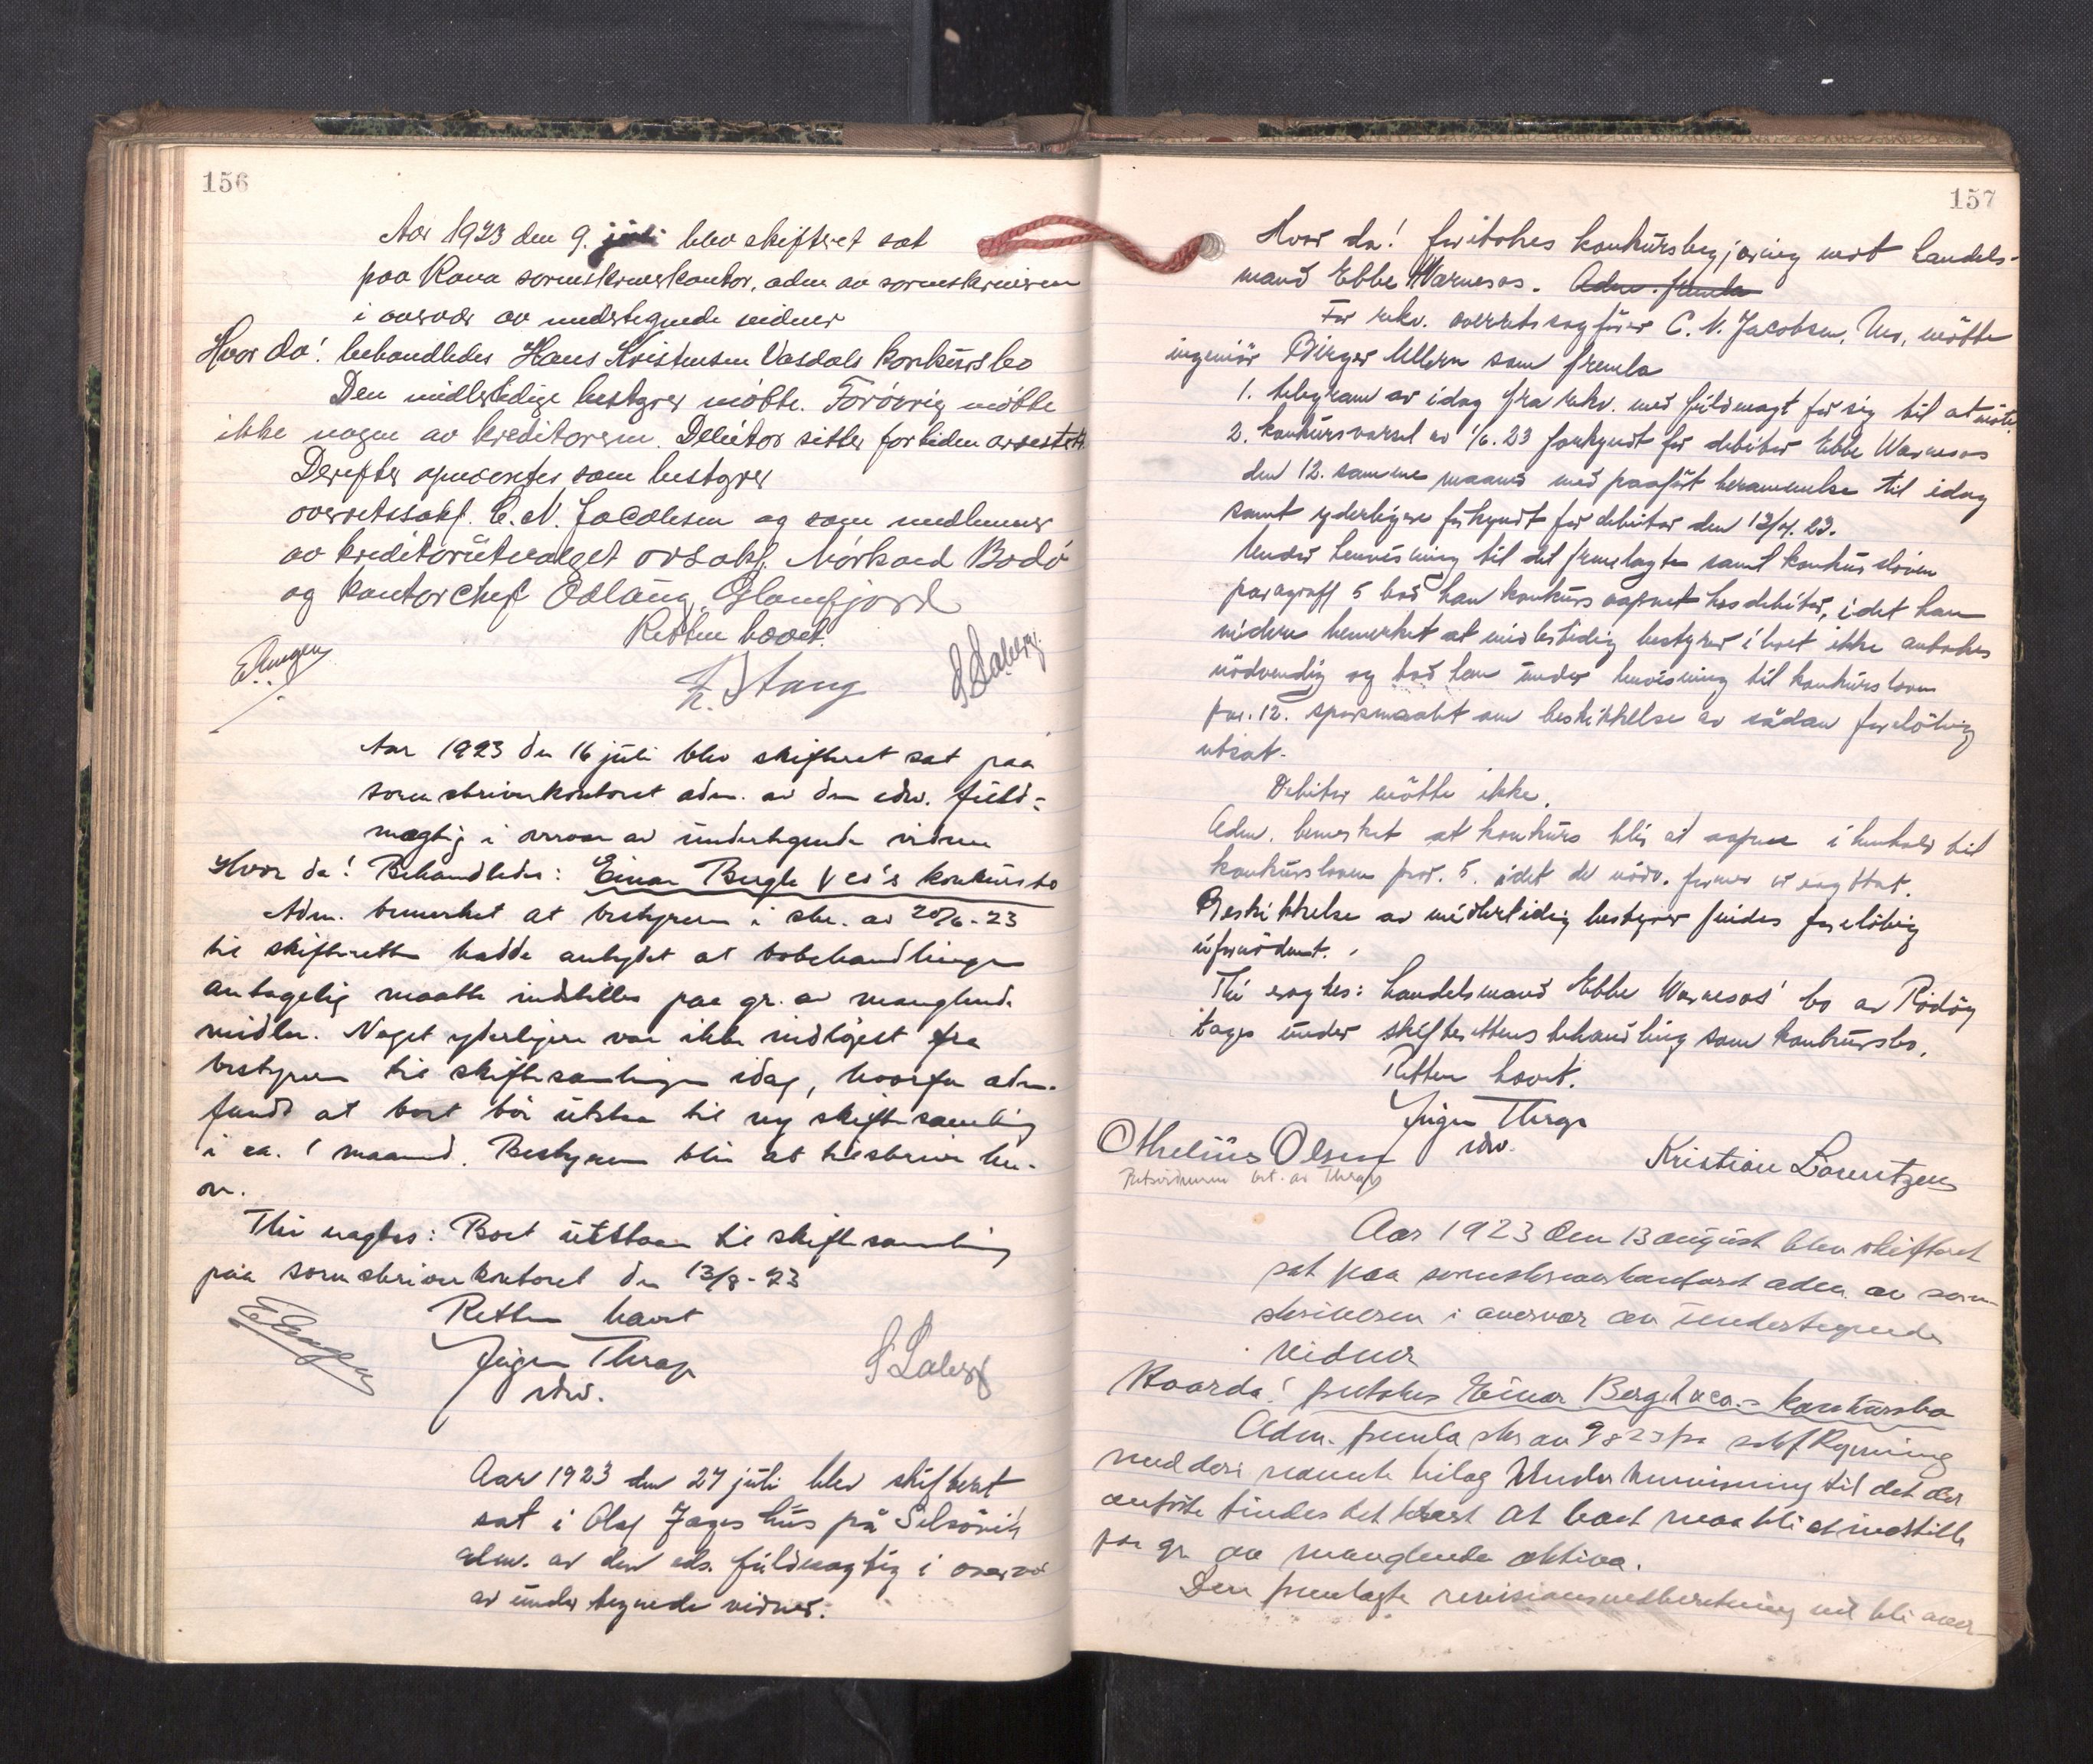 156
Aar 1923 den 9. juli blev skifteret sat
paa Rana sorenskriverkontor, adm av sorenskriveren
i overvær av undertegnede vidner
Hvor da! behandledes Hans Kristensen Vasdals konkursbo
Den midlertidige bestyrer møtte. Forøvrig møtte
ikke nogen av kreditorerne. Debitor sitter for tiden arrestert.
Derefter opnevntes som bestyrer
overretssakf. C. N. Jacobsen og som medlemmer
av kreditorutvalget orsakf. Mörkved Bodö
og kontorchef Ödlaug, Glomfjord
Retten hævet.
E. Lingen
Stang
S Laberg
Aar 1923 den 16 juli blev skifteret sat paa
sorenskriverkontoret adm. av den edsv. fuld-
mægtig i overvær av undertegnede vidner
Hvor da! Behandledes: Einar Bergh & co's konkursbo
Adm. bemerket at bestyreren i skr. av 20/6-23
til skifteretten hadde antydet at bobehandlingen
antagelig maatte indstilles paa gr. av manglende
midler. Noget yderligere var ikke indløpet fra
bestyreren til skiftesamlingen idag, hvorfor adm.
fandt at boet bör utstaa til ny skiftesamling
i ca. 1 maaned. Bestyreren blir at tilskrive her-
om.
Thi eragtes: Boet utstaar til skiftesamling
paa sorenskriverkontoret den 13/8-23
Retten hævet
Jürgen Thrap
edsv.
S Laberg
Aar 1923 den 27 juli blev skifteret
sat i Olaf Jages hus på Selsövik
adm. av den eds. fuldmægtig i overvær
av undertegnede vidner.
157
Hvor da! foretokes konkursbegjæring mot handels-
mand Ebbe Warnesos. Adm. fremla
For rekv. overretssagförer C. N. Jacobsen, Mo, mötte
ingeniör Birger Ullern som fremla
1. telegram av idag fra rekv. med fuldmagt for sig til at möte.
2. konkursvarsel av 1/6. 23 forkyndt for debitor Ebbe Warnesos
den 12. samme maaned med paafört berammelse til idag
samt yderligere forkyndt for debitor den 13/7. 23.
Under henvisning til det fremlagte samt konkursloven
paragraff 5 bad han konkurs aapnet hos debitor, idet han
videre bemerket at midlertidig bestyrer i boet ikke antokes
nödvendig og bad han under henvisning til konkursloven
par. 12. spörsmaalet om beskikkelse av sådan foreløbig
utsat.
Debitor mötte ikke.
Adm. bemerket at konkurs blir at aapne i henhold til
konkursloven par. 5. idet de nödv. former er iagttat.
Beskikkelse av midlertidig bestyrer findes foreløbig
ufornödent.
Thi eragtes: Handelsmand Ebbe Warnesos' bo av Rödöy
tages under skifterettens behandling som konkursbo.
Retten hævet.
Jürgen Thrap
edsv.
Othelius Olsen
Kristian Lorentzen
Retsvidnerne bet. av Thrap
Aar 1923 den 13 august blev skifteret
sat paa sorenskriverkontoret adm. av soren-
skriveren i overvær av undertegnede
vidner
Hvorda! foretokes Einar Bergh & co.s konkursbo
Adm. fremla skr av 9/8 23 fra sakf Rynning
med deri nævnte bilag Under henvisning til det der
anförte findes det klarest at boet maa bli at indstille
paa gr av manglende aktiva.
Den fremlagte revisionsindberetning vil bli over-